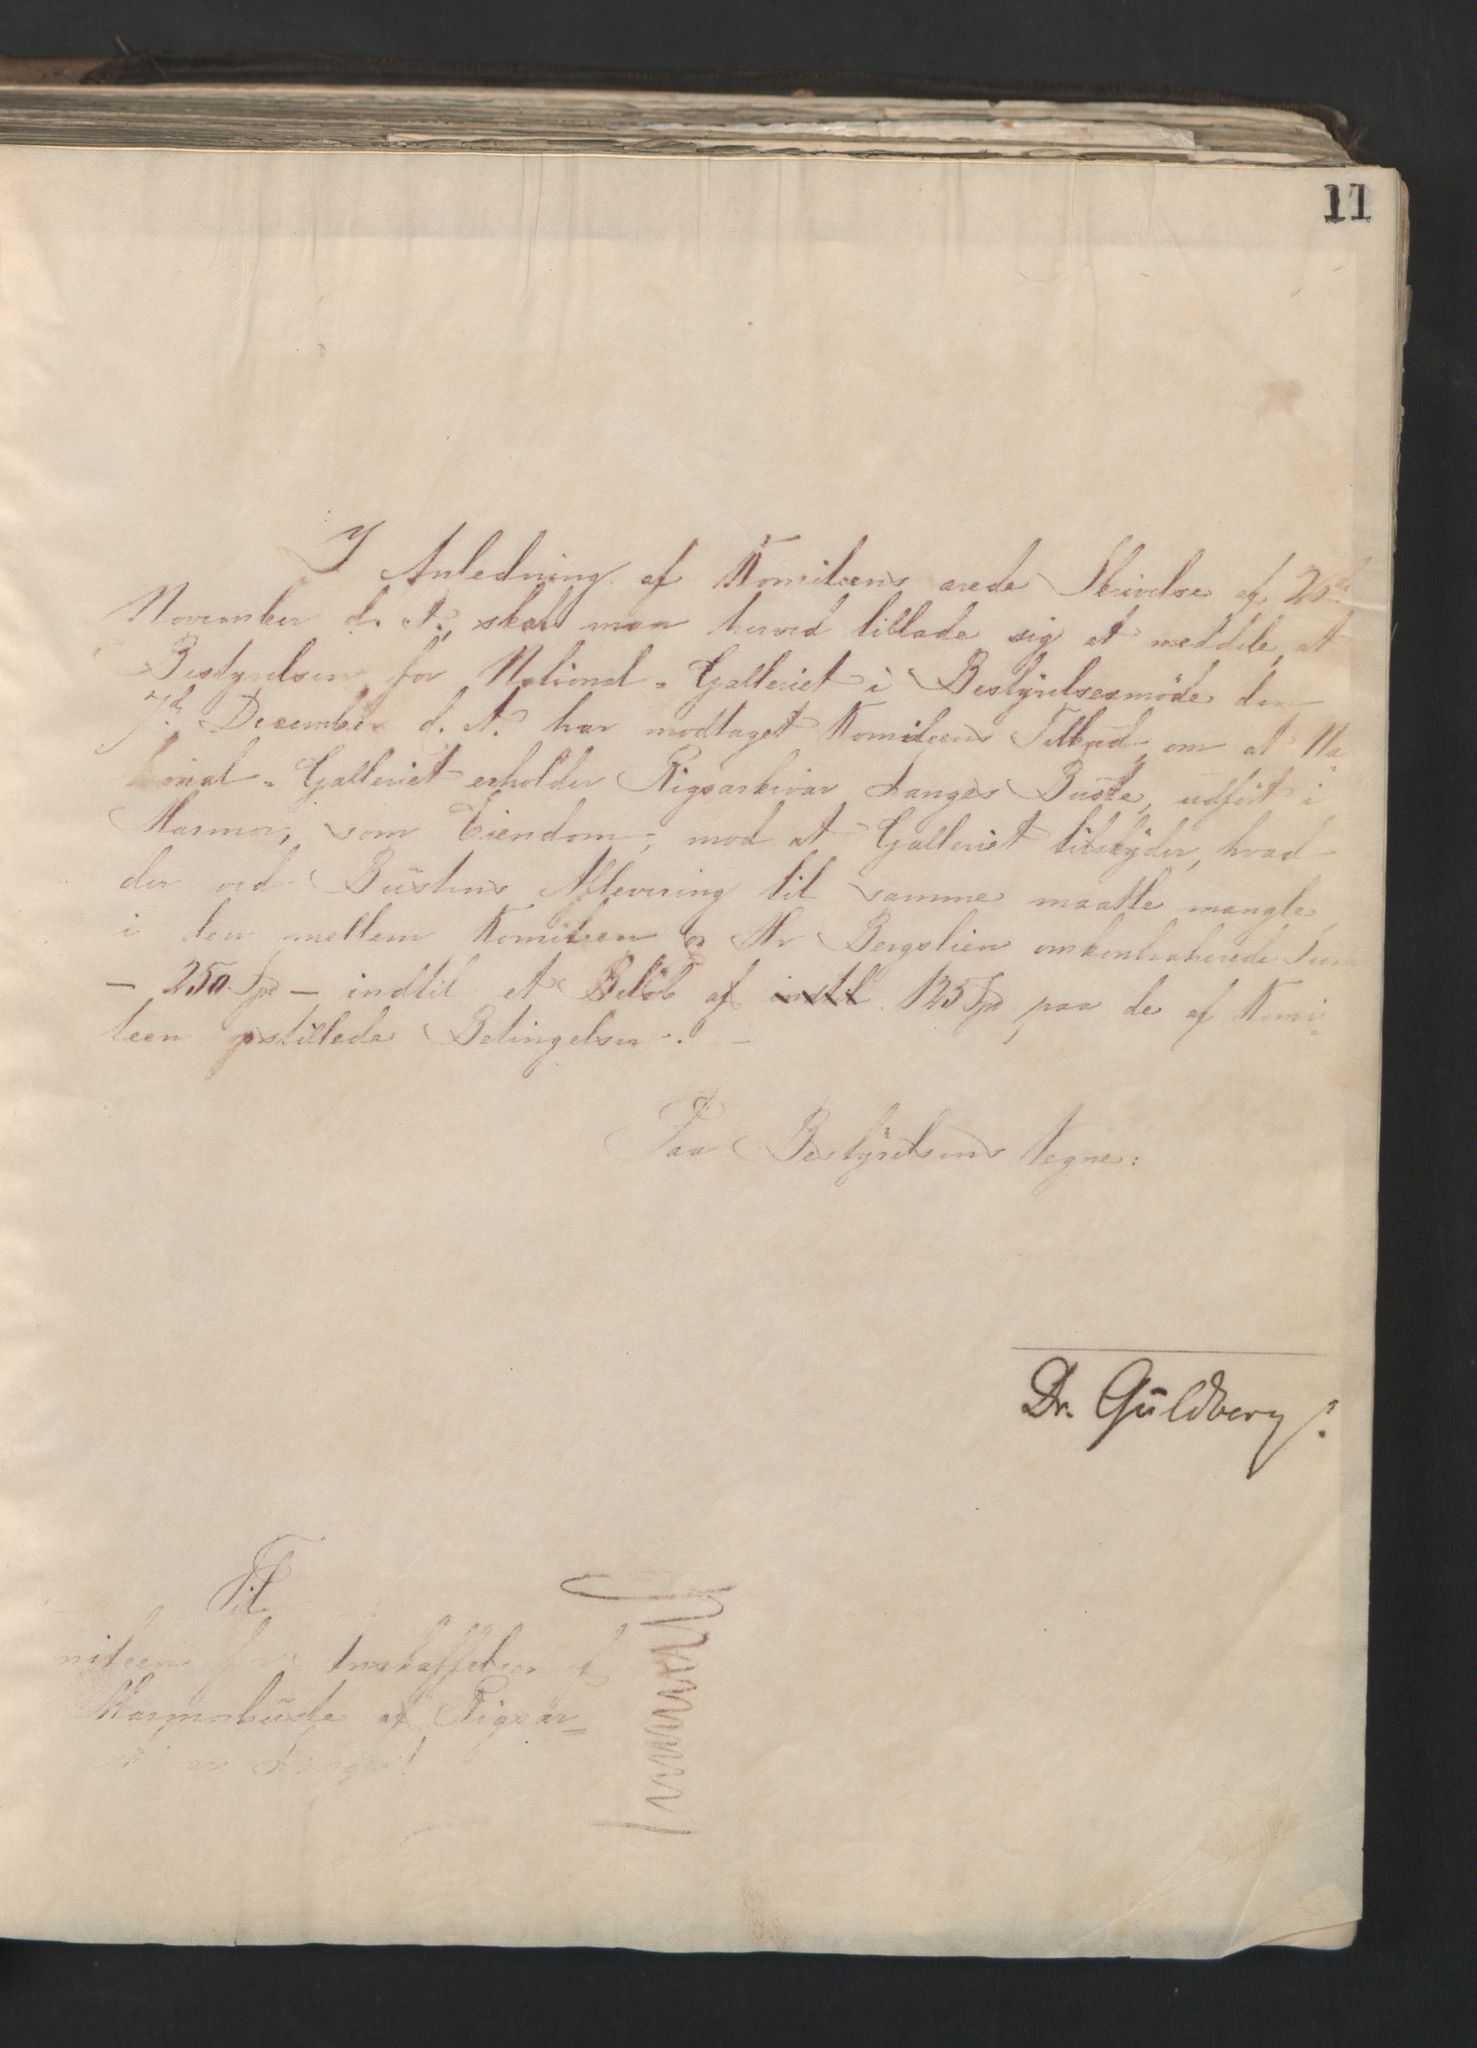 11
I Anledning af Komiteens ærede Skrivelse af 26de
November d. A., skal man herved tillade sig at meddele, at
Bestyrelsen for National-Galleriet i Bestyrelsesmöde den
7de December d. A. har modtaget Komiteens Tilbud, om at Na-
tional-Galleriet erholder Rigsarkivar Langes Buste, udfört i
Marmor, som Eiendom, mod at Galleriet tilskyder, hvad
der ved Bustens Aflevering til samme maatte mangle
i den mellem Komiteen og Hr Bergslien omkontraherede Sum
— 250 Spd — indtil et Belöb af indtil 125 Spd, paa de af Komi-
teen opstillede Betingelser. —
Paa Bestyrelsens Vegne:
Dr. Guldberg
Til
miteen for Anskaffelsen af
Marmorbuste af Rigsar=
kivar Lange!